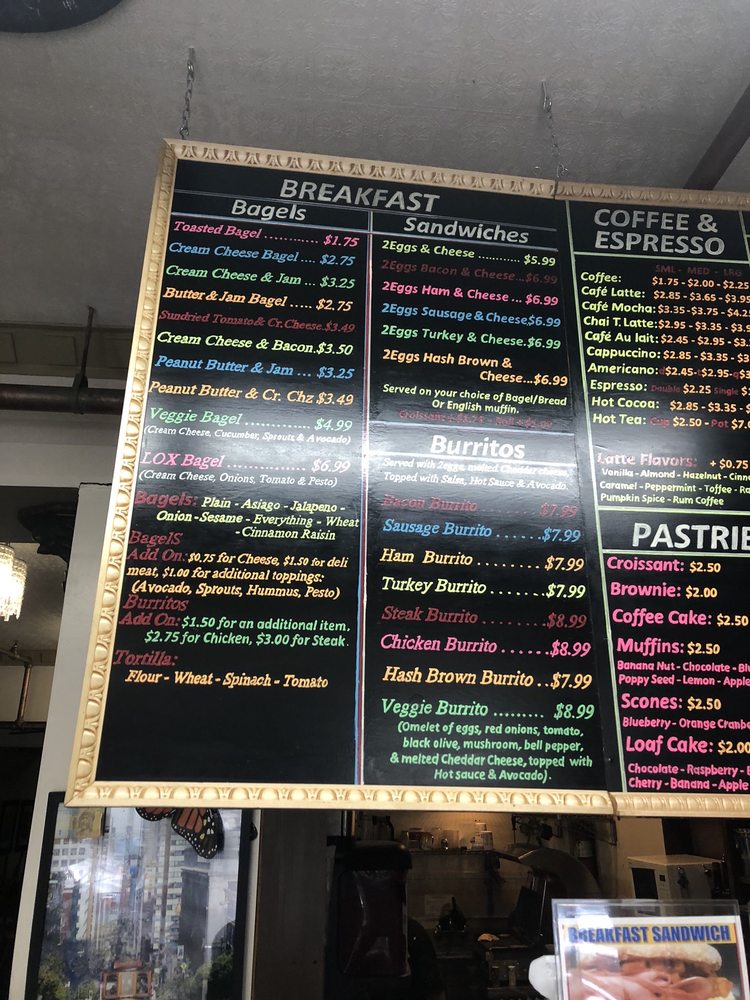 BREAKFAST
Bagels
Toasted Bagel ............ $1.75
Cream Cheese Bagel .... $2.75
Cream Cheese & Jam ... $3.25
Butter & Jam Bagel ..... $2.75
Sundried Tomato & Cr. Cheese. $3.49
Cream Cheese & Bacon. $3.50
Peanut Butter & Jam ... $3.25
Peanut Butter & Cr. Chz $3.49
Veggie Bagel .............. $4.99
(Cream Cheese, Cucumber, Sprouts & Avocado)
LOX Bagel ................. $6.99
(Cream Cheese, Onions, Tomato & Pesto)
Bagels: Plain - Asiago - Jalapeno -
Onion - Sesame - Everything - Wheat
- Cinnamon Raisin
BagelS
Add On: $0.75 for Cheese, $1.50 for deli
meat, $1.00 for additional toppings:
(Avocado, Sprouts, Hummus, Pesto)
Burritos
Add On: $1.50 for an additional item,
$2.75 for Chicken, $3.00 for Steak.
Tortilla:
Flour - Wheat - Spinach - Tomato
Sandwiches
2Eggs & Cheese ............ $5.99
2Eggs Bacon & Cheese... $6.99
2Eggs Ham & Cheese ... $6.99
2Eggs Sausage & Cheese, $6.99
2Eggs Turkey & Cheese. $6.99
2Eggs Hash Brown &
Cheese... $6.99
Served on your choice of Bagel/Bread
Or English muffin.
Burritos
Served with 2eggs, melted Cheddar cheese,
Topped with Salsa, Hot Sauce & Avocado.
Bacon Burrito ........ $7.99
Sausage Burrito ...... $7.99
Ham Burrito ........ $7.99
Turkey Burrito ....... $7.99
Steak Burrito ........ $8.99
Chicken Burrito ...... $8.99
Hash Brown Burrito .. $7.99
Veggie Burrito ......... $8.99
(Omelet of eggs, red onions, tomato,
black olive, mushroom, bell pepper,
& melted Cheddar Cheese, topped with
Hot sauce & Avocado).
COFFEE &
ESPRESSO
SML - MED - LRG
Coffee: $1.75 - $2.00 - $2.25
Café Latte: $2.85 - $3.65 - $3.95
Café Mocha: $3.35 - $3.75 - $4.2
Chai T. Latte: $2.95 - $3.35 - $3.
Café Au lait: $2.45 - $2.95 - $3.
Cappuccino: $2.85 - $3.35 - $3
Americano: $2.45 - $2.95 - $3
Espresso: Double $2.25 Single $
Hot Cocoa: $2.85 - $3.35 -
Hot Tea: Cup $2.50 - Pot $7.0
Latte Flavors: + $0.75
Vanilla - Almond - Hazelnut - Cinn
Caramel - Peppermint - Toffee - Ra
Pumpkin Spice - Rum Coffee
PASTRIE
Croissant: $2.50
Brownie: $2.00
Coffee Cake: $2.50
Muffins: $2.50
Banana Nut - Chocolate - Blu
Poppy Seed - Lemon - Apple
Scones: $2.50
Blueberry - Orange Cranbe
Loaf Cake: $2.00
Chocolate - Raspberry -
Cherry - Banana - Apple
BREAKFAST SANDWICH